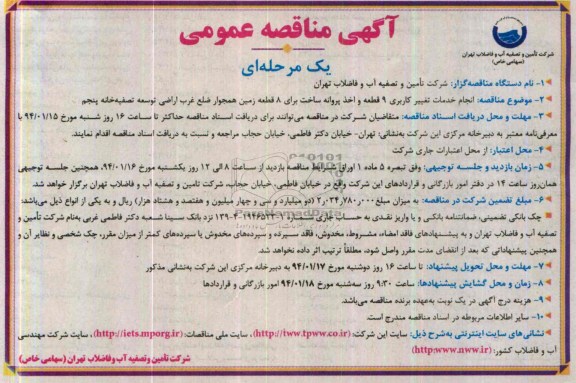 آگهی مناقصه عمومی
یک مرحله‌ای
شرکت تأمین و تصفیه آب و فاضلاب تهران
(سهامی خاص)
۱- نام دستگاه مناقصه‌گزار: شرکت تأمین و تصفیه آب و فاضلاب تهران
۲- موضوع مناقصه: انجام خدمات تغییر کاربری ۹ قطعه و اخذ پروانه ساخت برای ۸ قطعه زمین همجوار ضلع غرب اراضی توسعه تصفیه‌خانه پنجم
۳- مهلت و محل دریافت اسناد مناقصه: متقاضیان شرکت در مناقصه می‌توانند برای دریافت اسناد مناقصه حداکثر تا ساعت ۱۶ روز شنبه مورخ ۹۴/۰۱/۱۵ با
معرفی‌نامه معتبر به دبیرخانه مرکزی این شرکت به‌نشانی: تهران- خیابان دکتر فاطمی، خیابان حجاب مراجعه و نسبت به دریافت اسناد مناقصه اقدام نمایند.
۴- محل اعتبار: از محل اعتبارات جاری شرکت
۵- زمان بازدید و جلسه توجیهی: وفق تبصره ۵ ماده ۱ اوراق شرایط مناقصه بازدید از ساعت ۸ الی ۱۲ روز یکشنبه مورخ ۹۴/۰۱/۱۶، همچنین جلسه توجیهی
همان‌روز ساعت ۱۴ در دفتر امور بازرگانی و قراردادهای این شرکت واقع در خیابان فاطمی، خیابان حجاب، شرکت تأمین و تصفیه آب و فاضلاب تهران برگزار خواهد شد.
۶- مبلغ تضمین شرکت در مناقصه: به میزان مبلغ ۲٫۰۳۴٫۷۸۰٫۰۰۰ (دو میلیارد و سی و چهار میلیون و هفتصد و هشتاد هزار) ریال و به یکی از انواع ذیل می‌باشد:
چک بانکی تضمینی، ضمانتنامه بانکی و یا واریز نقدی به حساب جاری شماره نزد بانک سینا شعبه دکتر فاطمی غربی به‌نام شرکت تأمین و
تصفیه آب و فاضلاب تهران و به پیشنهادهای فاقد امضاء، مشروط، مخدوش، فاقد سپرده و سپرده‌های مخدوش یا سپرده‌های کمتر از میزان مقرر، چک شخصی و نظایر آن و
همچنین پیشنهاداتی که بعد از انقضای مدت مقرر واصل شود، مطلقاً ترتیب اثر داده نخواهد شد.
۷- مهلت و محل تحویل پیشنهاد: تا ساعت ۱۶ روز دوشنبه مورخ ۹۴/۰۱/۱۷ به دبیرخانه مرکزی این شرکت به‌نشانی مذکور
۸- زمان و محل گشایش پیشنهادها: ساعت ۹:۳۰ روز سه‌شنبه مورخ ۹۴/۰۱/۱۸ امور بازرگانی و قراردادها
۹- هزینه درج آگهی در یک نوبت به‌عهده برنده مناقصه می‌باشد.
۱۰- سایر اطلاعات مربوطه در اسناد مناقصه مندرج است.
نشانی‌های سایت اینترنتی به‌شرح ذیل: سایت این شرکت: (http://tww.tpww.co.ir)، سایت ملی مناقصات: (http://iets.mporg.ir)، سایت شرکت مهندسی
آب و فاضلاب کشور: (http:www.nww.ir)
شرکت تأمین وتصفیه آب وفاضلاب تهران (سهامی خاص)